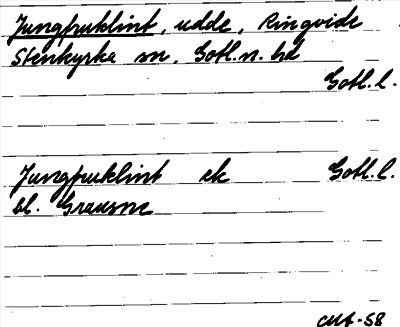 Jungfruklint, udde, Ringvide
Stenkyrka sn, Gotl.n. hd
Gotl. l.
Jungfruklint ek Gotl. l.
bl. Grausne
CMA-58